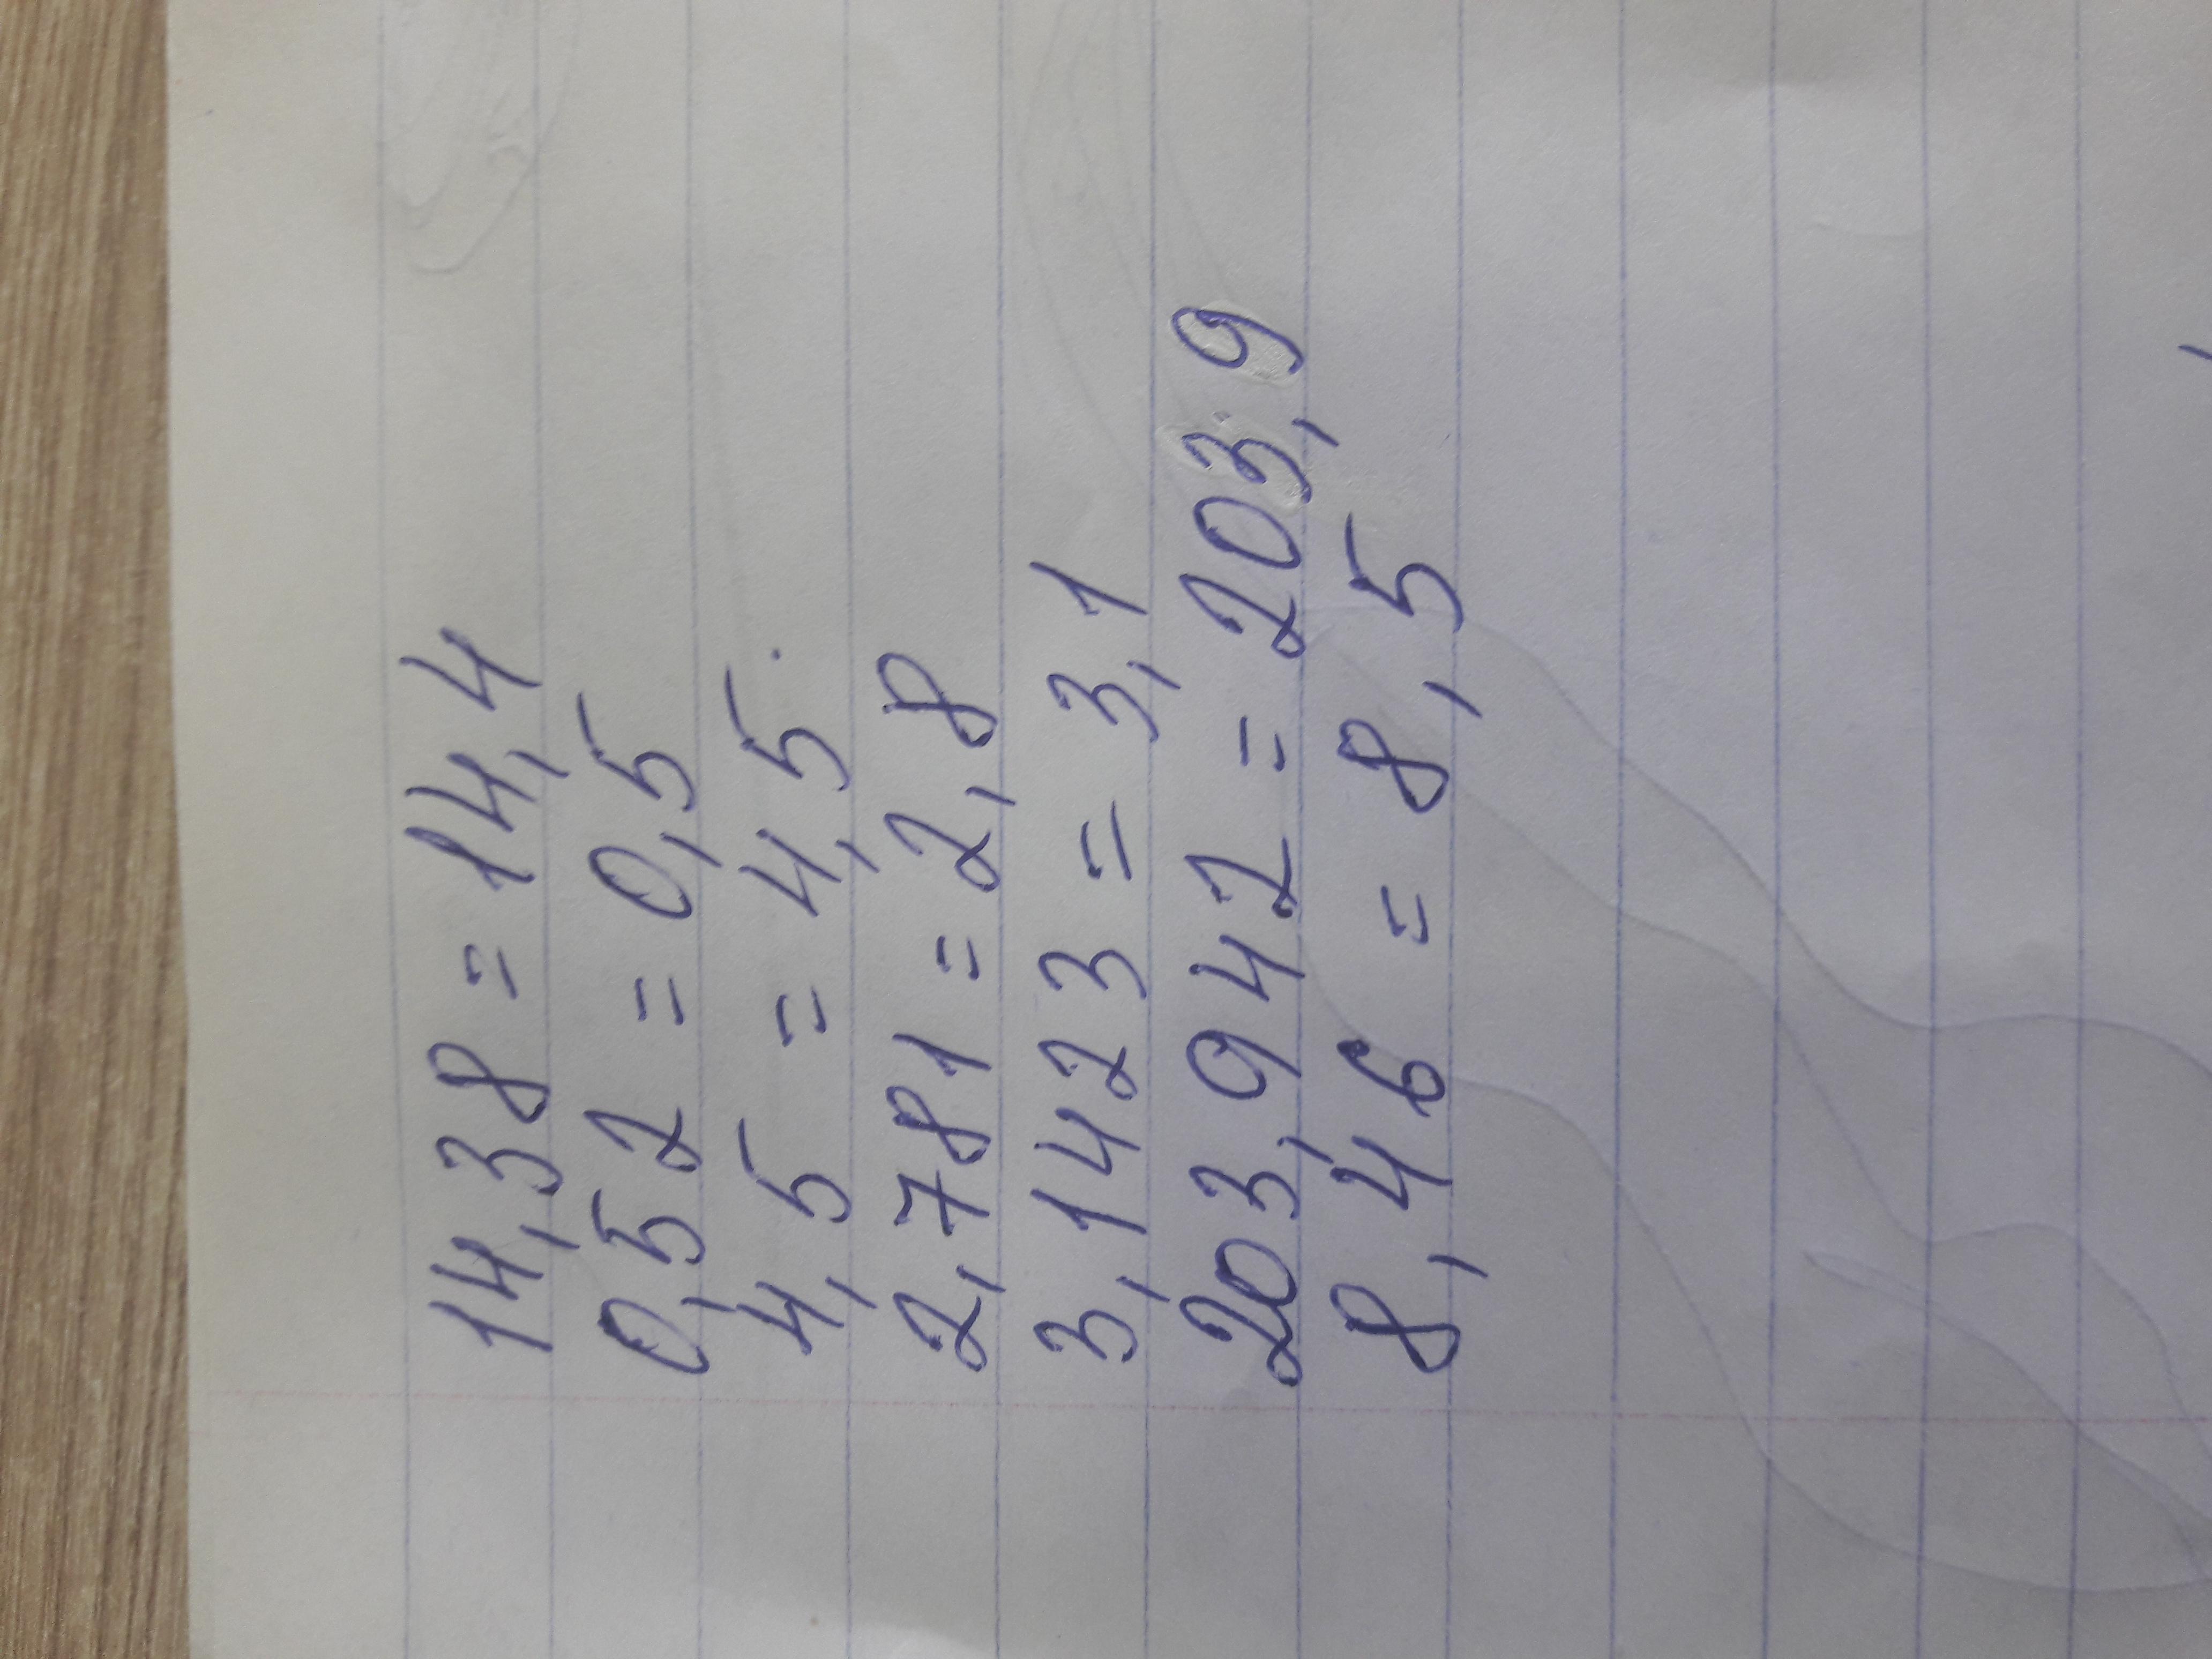 14,38 = 14,4
0,52 = 0,5
4,5 = 4,5
2,781 = 2,8
3,1423 = 3,1
203,942 = 203,9
8,46 = 8,5